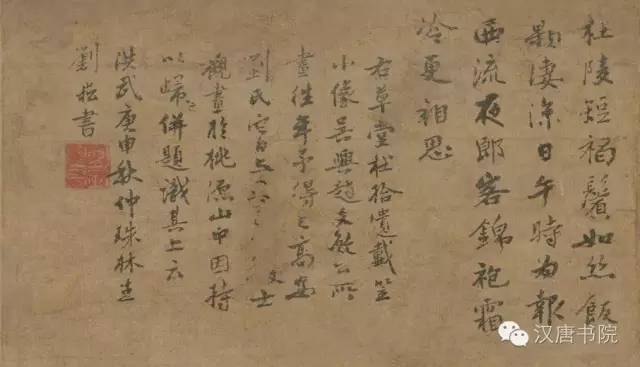 杜陵短褐鬢如絲飯
顆凄凉日午時为報
西流夜郎客錦袍霜
冷更相思
右草堂杜拾遺戴笠
小像吴興趙文敏公所
畫往年予得之高安
劉氏文士
觀畫於桃源山中因持
以歸併題識其上云
洪武庚申秋仲珠林生
劉崧書
汉唐书院